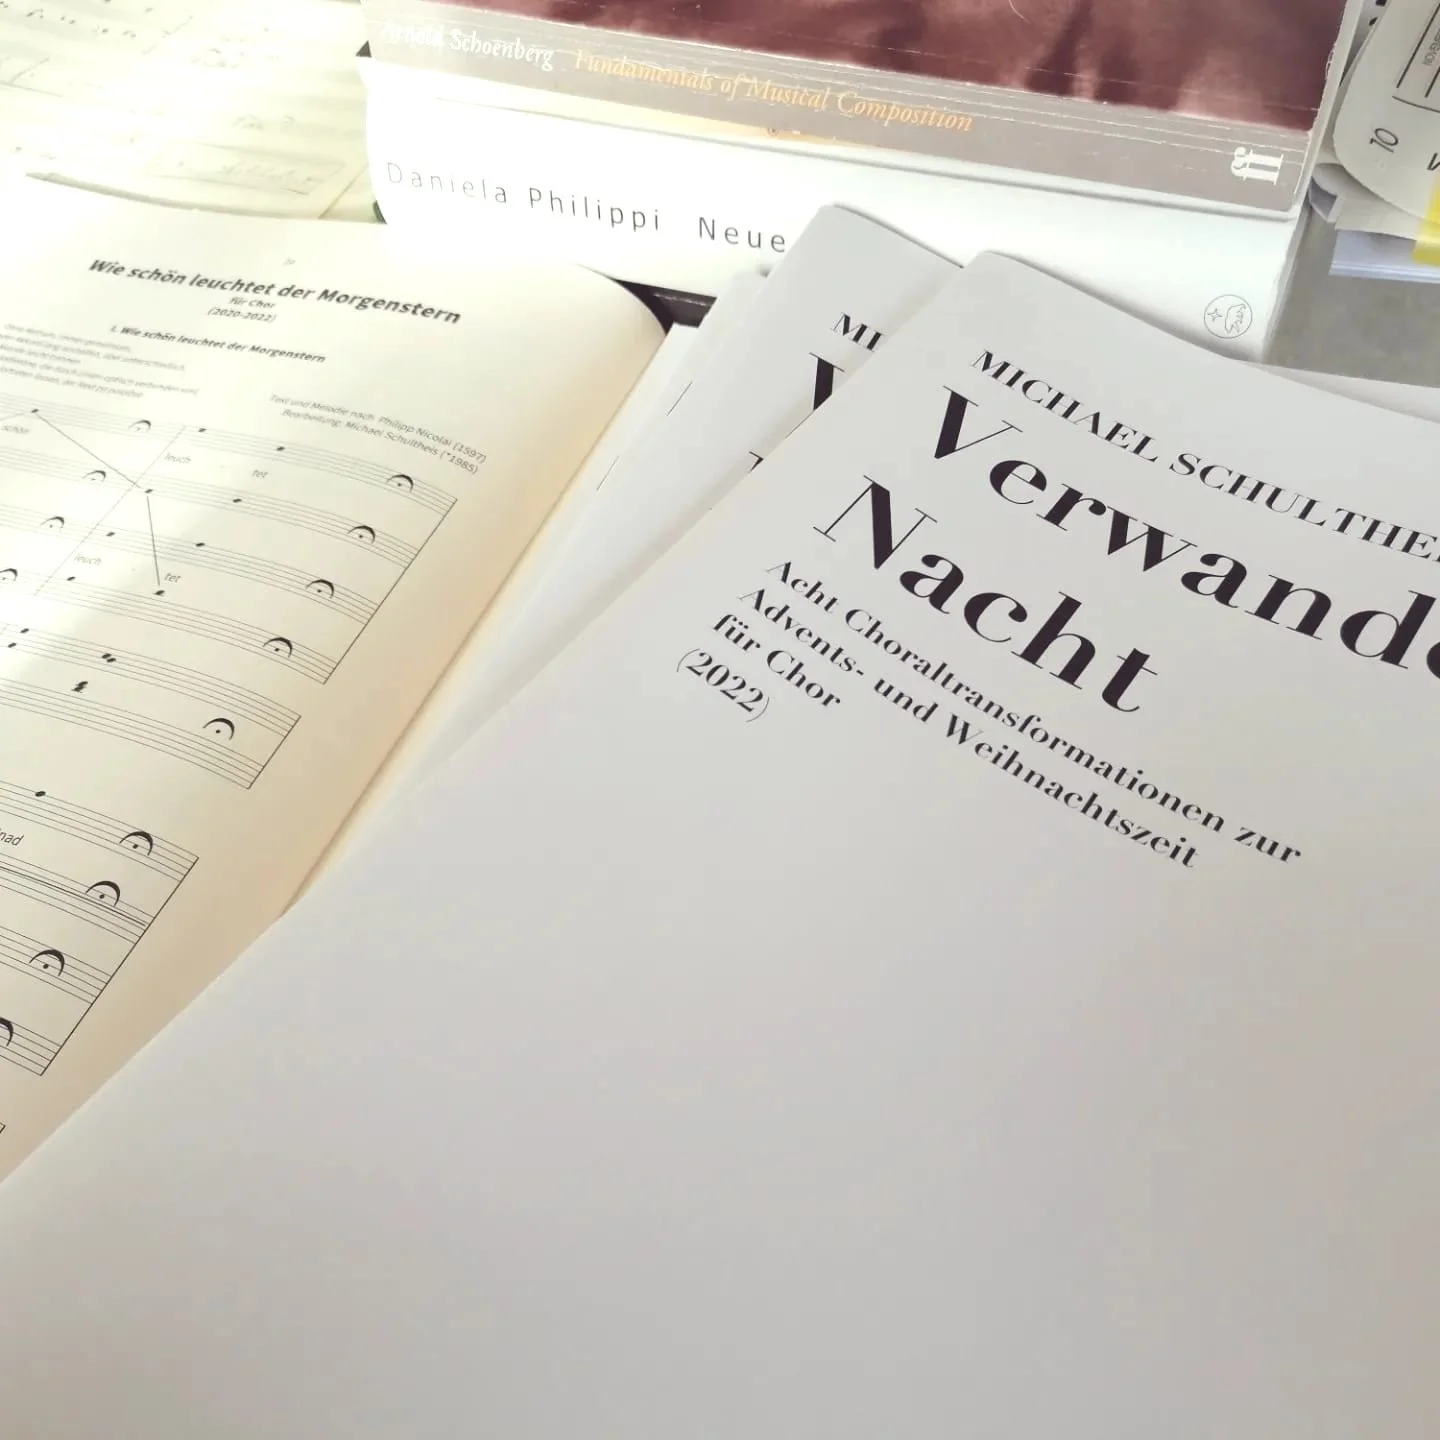 Arnold Schoenberg Fundamentals of Musical Composition
ff
Daniela Philippi Neue
10
Wie schön leuchtet der Morgenstern
für Chor
(2020-2022)
1. Wie schön leuchtet der Morgenstern
Text und Melodie nach: Philipp Nicolai (1597)
Bearbeitung: Michael Schultheis (*1985)
schön
leuch tet
leuch tet
nad
MI
V
MICHAEL SCHULTHE
Verwand
Nacht
Acht Choraltransformationen zur
Advents- und Weihnachtszeit
für Chor
(2022)